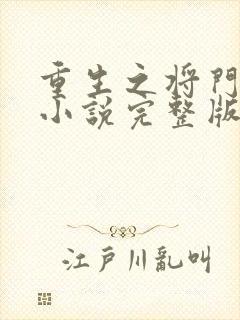 重生之将門
小説完整版
江戸川亂叫